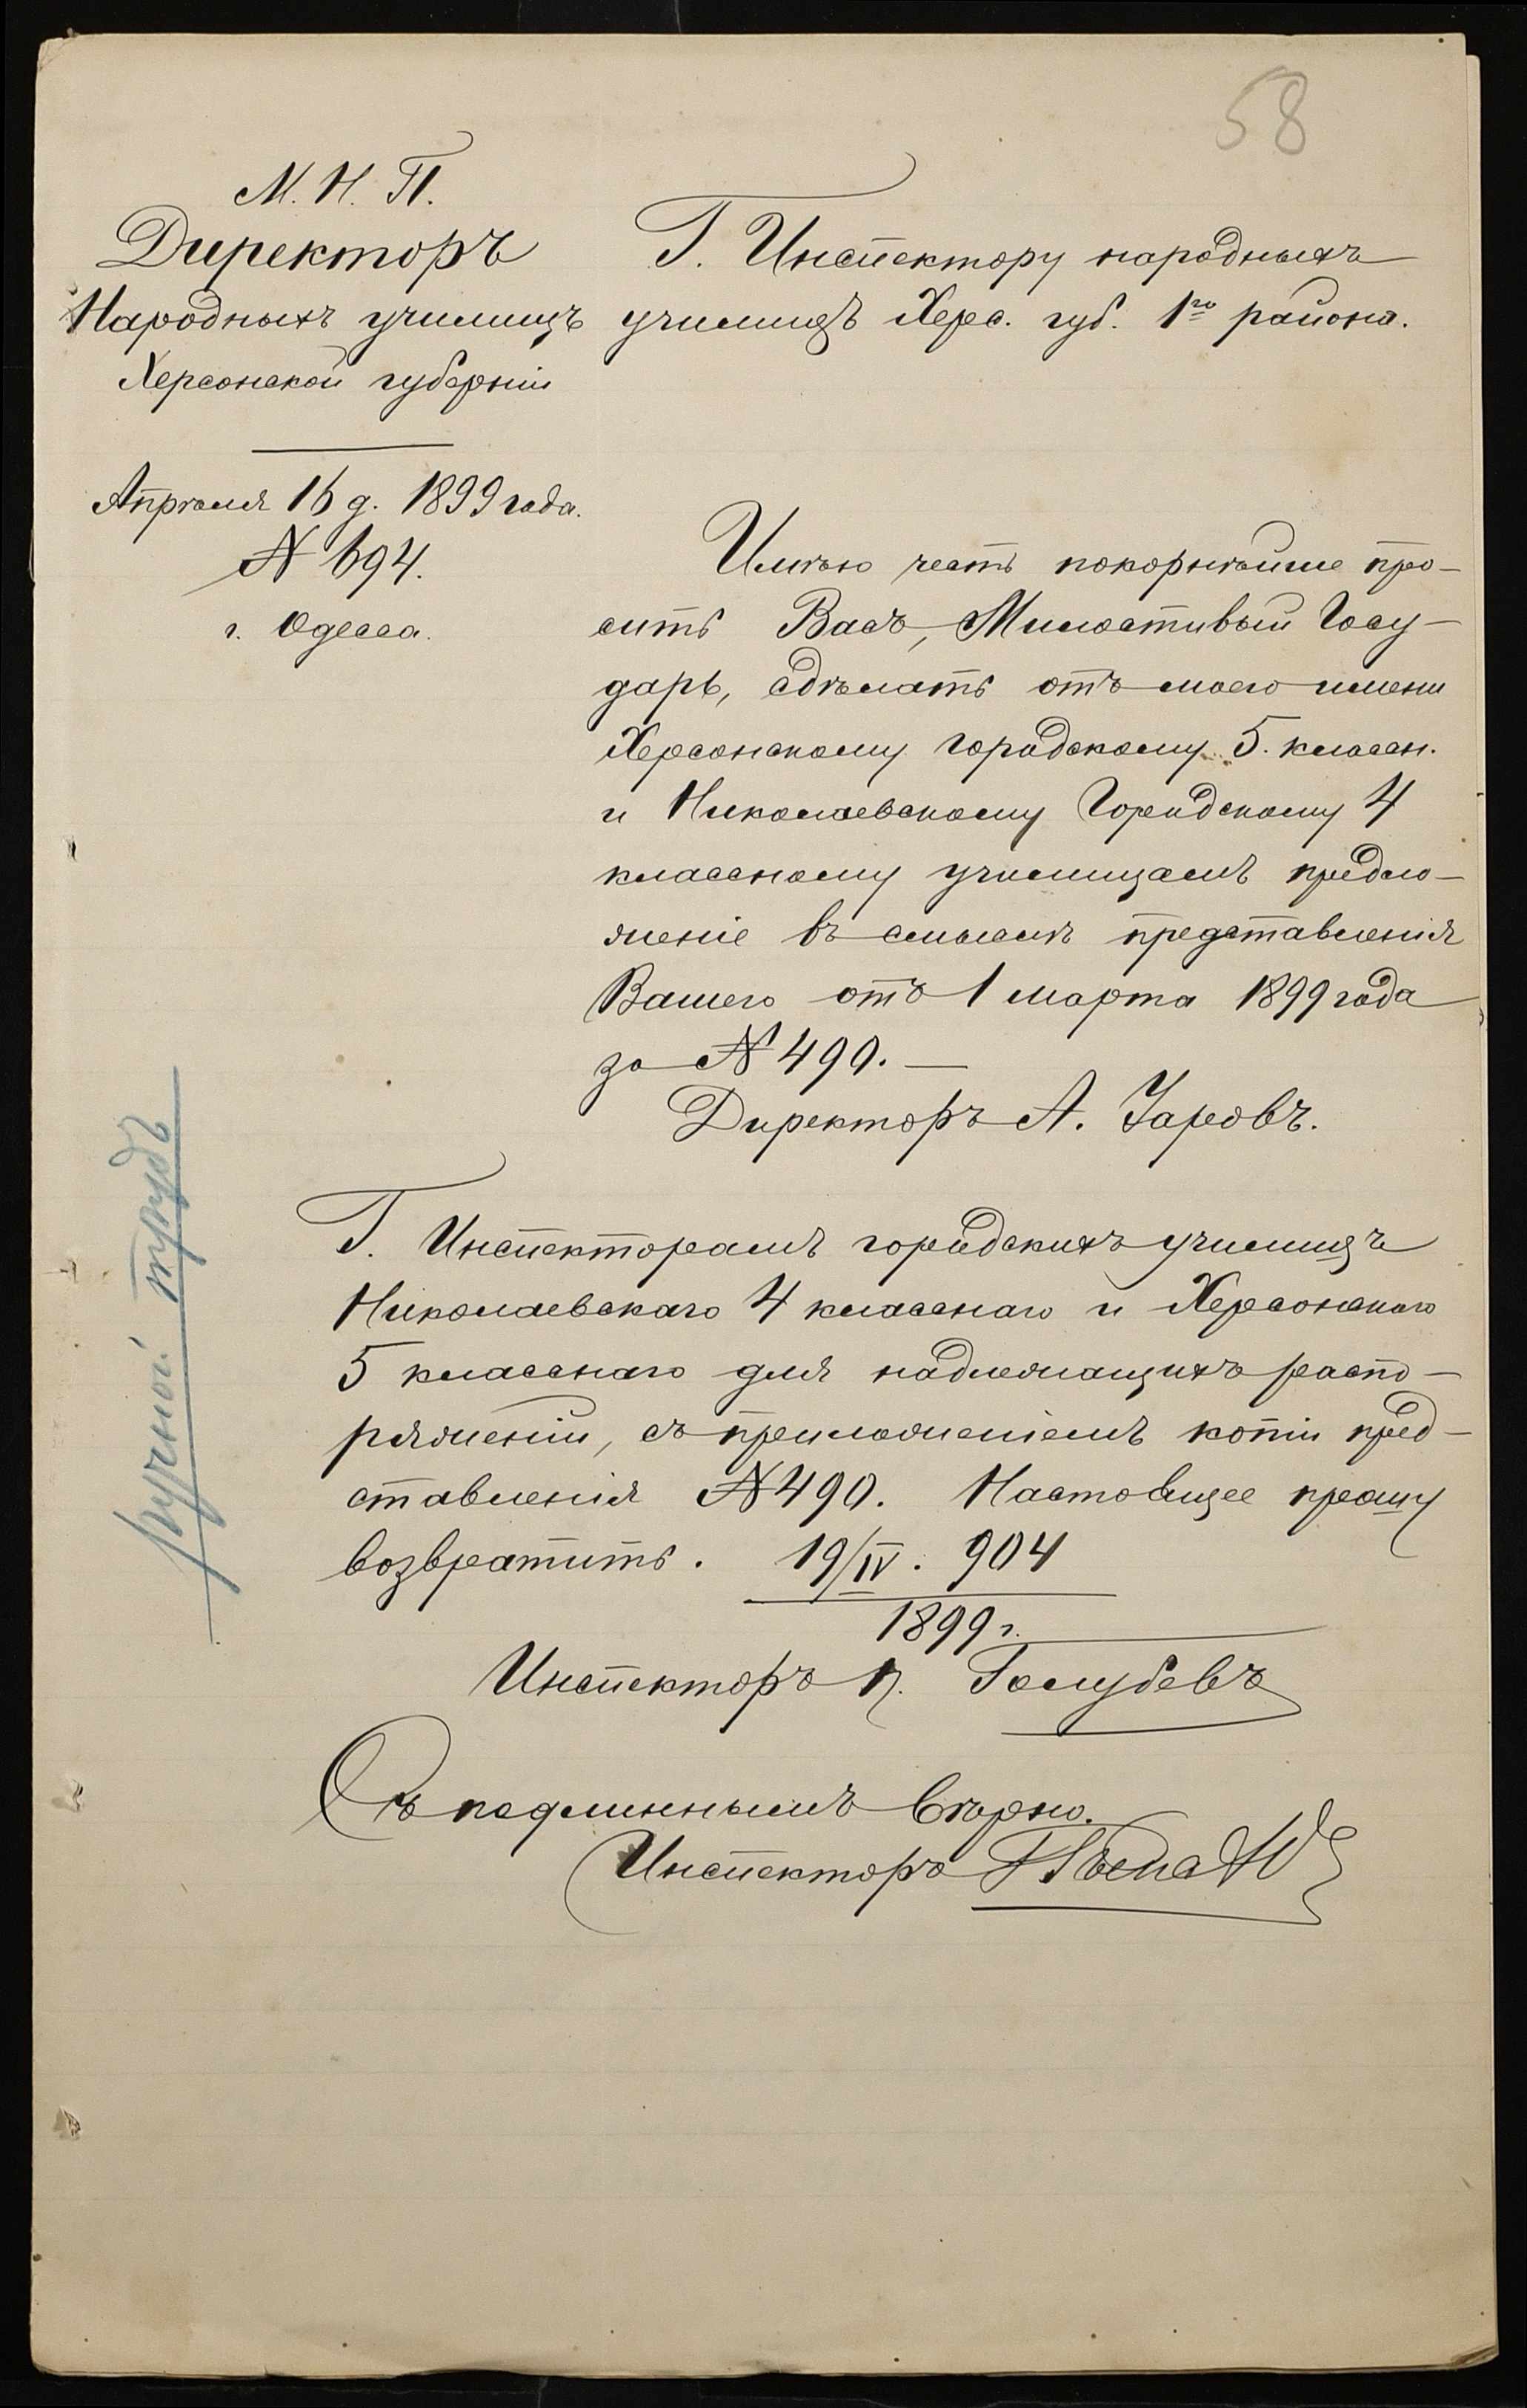 58
М. Н. П.
Директоръ
Народныхъ училищъ
Херсонской губерніи
Апрѣля 16 д. 1899 года.
№ 694.
г. Одесса.
Г. Инспектору народныхъ
училищъ Херс. губ. 1го района.
Имѣю честь покорнѣйше про-
сить Васъ, Милостивый Госу-
дарь, сдѣлать отъ моего имени
Херсонскому городскому 5. классн.
и Николаевскому Городскому 4
классному училищамъ предло-
женіе въ смыслѣ представленія
Вашего отъ 1 марта 1899 года
за № 490. —
Директоръ А.
ручной трудъ
Г. Инспекторамъ городскихъ училищъ
Николаевскаго 4 класснаго и Херсонскаго
5 класснаго для надлежащихъ распо-
ряженій, съ приложеніемъ копіи пред-
ставленія № 490. Настоящее прошу
возвратить. 19/IV. 904
1899 г.
Инспекторъ П. Голубевъ
Съ подлиннымъ вѣрно.
Инспекторъ